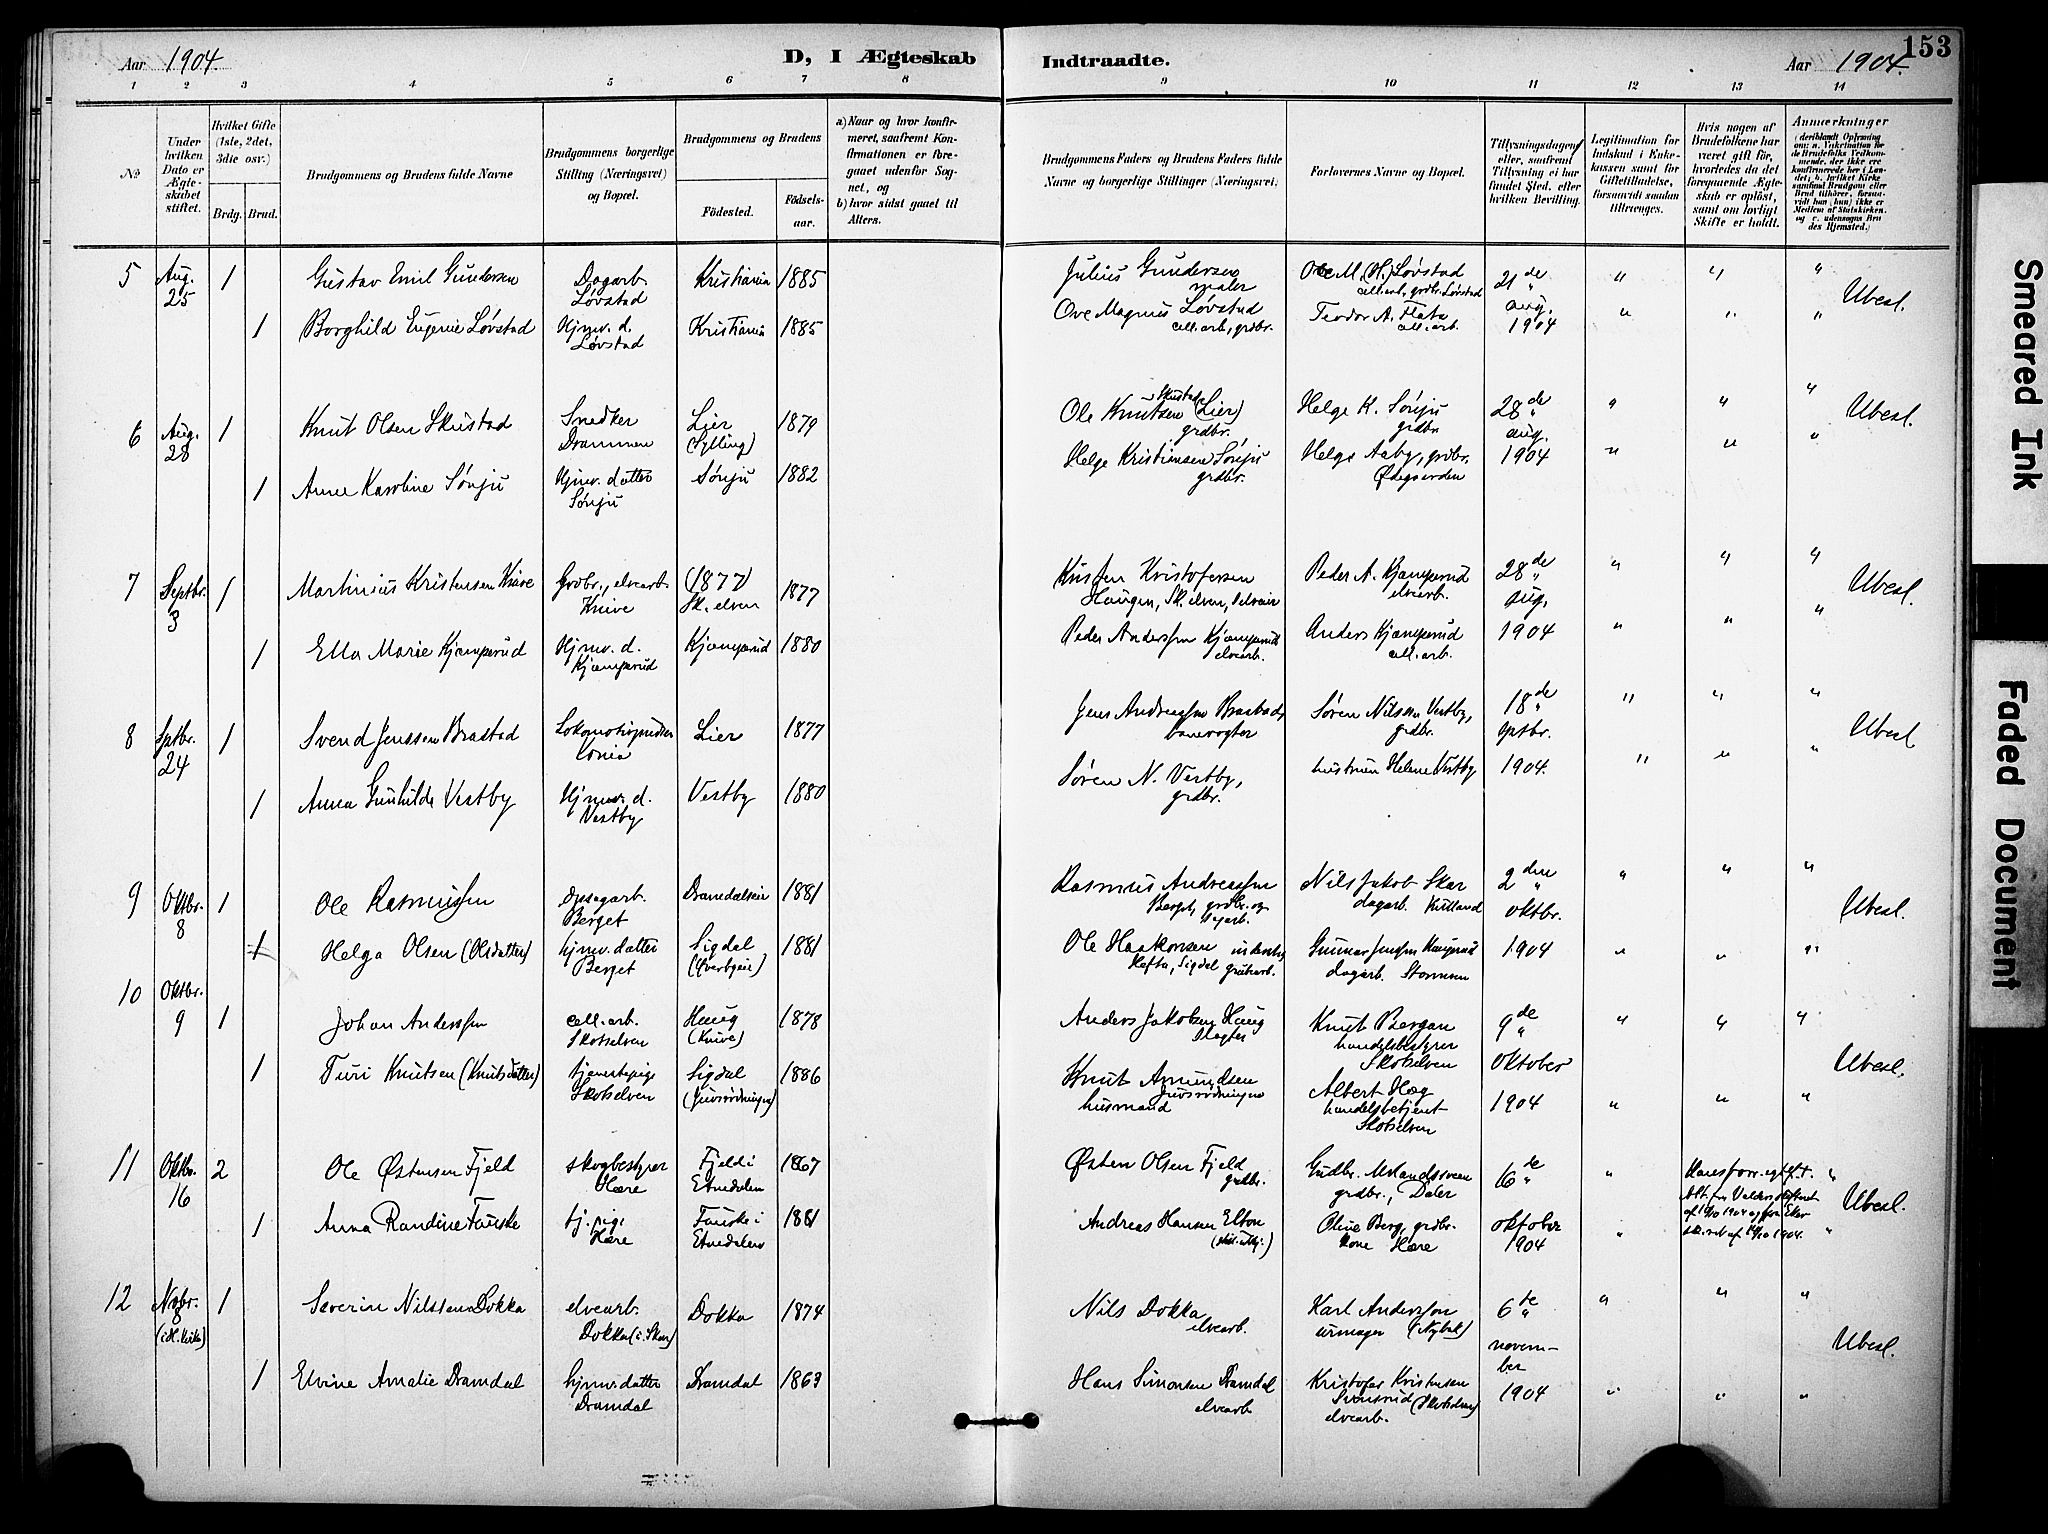 153
Aar 1904.
D, I Ægteskab
Indtraadte.
Aar 1904.
1 2 3 4 5 6 7 8 9 10 11 12 13 14
No
Under hvilken Dato er Ægteskabet stiftet.
Hvilket Gifte (1ste, 2det, 3die osv.)
Brdg. Brud.
Brudgommens og Brudens fulde Navne
Brudgommens borgerlige Stilling (Næringsvei) og Bopæl.
Brudgommens og Brudens
Födested.
Födselsaar.
a) Naar og hvor konfirmeret, saafremt Konfirmationen er foregaaet udenför Sognet, og
b) hvor sidst gaaet til Alters.
Brudgommens Faders og Brudens Faders fulde Navne og borgerlige Stillinger (Næringsvei.)
Forlovernes Navne og Bopæl.
Tillysningsdagen eller, saafremt Tillysning ei har fundet Sted, efter hvilken Bevilling.
Legitimation for Indskud i Enkekassen samt for Giftetilladelse, forsaavidt saadan tiltrænges.
Hvis nogen af Brudefolkene har været gift för, hvorledes da det foregaaende Ægteskab er oplöst, samt om lovligt Skifte er holdt.
Anmærkninger
5 Aug. 25 1 Gustav Emil Gundersen Dagarb. Løvstad Kristiania 1885
Julius Gundersen maler Ole M. (H.) Løvstad cell.arb., grdbr. Løvstad 21de aug. 1904 " " " Ubesl.
1 Borghild Eugenie Løvstad Hjmv. d. Løvstad Kristiania 1885
Ove Magnus Løvstad cell.arb., grdbr. Teodor A. Flata cell.arb. " " "
6 Aug. 28 1 Knut Olsen Skustad Snedker Drammen Lier (Sylling) 1879
Ole Knutsen Skustad (Lier) grdbr. Helge K. Sønju grdbr. 28de aug. 1904 " " " Ubesl.
1 Anne Karoline Sønju Hjmv. datter Sønju Sønju 1882
Helge Kristiansen Sønju grdbr. Helge Aaby, grdbr. Ødegaarden " " "
7 Septbr. 3 1 Martinius Kristensen Knive Grdbr., elvearb. Knive (1877) Sk.elven 1877
Kristen Kristofersen Haugen, Sk.elven, Peder A. Kjæmperud elvearb. 28de aug. 1904 " " " Ubesl.
1 Ella Marie Kjæmperud Hjmv. d. Kjæmperud Kjæmperud 1880
Peder Anderssen Kjæmperud elvearb. Anders Kjæmperud cell.arb. " " "
8 Sptbr. 24 1 Svend Jenssen Brastad Lier 1877
Jens Andreassen Brastad, banevogter Søren Nilsen Vestby, grdbr. 18de sptbr. 1904. " " " Ubesl.
1 Anna Gunhilde Vestby Hjmv. d. Vestby Vestby 1880
Søren N. Vestby, grdbr. hustruen Helene Vestby " " "
9 Oktbr. 8 1 Ole Rasmussen Berget Dramdalseie 1881
Rasmus Andreassen Berget, grdbr. og Nils Jakob Skar dagarb. 2den oktbr. 1904 " " " Ubesl.
1 Helga Olsen (Olsdatter) hjmv. datter Berget Sigdal 1881
Ole Haakonsen Hefta, Sigdal Gunnar Jenssen dagarb. " " "
10 Oktbr. 9 1 Johan Anderssen cell.arb. Skotselven Haug (Knive) 1878
Anders Jakobsen Haug slagter Knut Bergan handelsbestyrer Skotselven 9de oktober 1904 " " " Ubesl.
1 Turi Knutsen (Knutsdatter) tjenestepige Skotselven Sigdal 1886
Knut Amundsen husmand Albert Hæg handelsbetjent Skotselven " " "
11 Oktbr. 16 2 Ole Østensen Fjeld skogbestyrer Hære Fjeld i Etnedalen 1867
Østen Olsen Fjeld grdbr. Gudbr. grdbr., Daler 16de oktober 1904 " " Ubesl.
1 Anna Randine Fauske tj.pige Hære Fauske i Etnedalen 1881
Andreas Hansen Elton Oline Berg, grdbr. kone Hære " "
12 Novbr. 8 (i H.kirke) 1 Severin Nilssen Dokka elvearb. Dokka (i Skar) Dokka 1874
Nils Dokka elvearb. Karl Anderssen urmager 6te november 1904 " " " Ubesl.
1 Elvine Amalie Dramdal hjmv. datter Dramdal Dramdal 1863
Hans Simonsen Dramdal elvearb. Kristofer Kristensen (Skotselven) elvearb. " " "
Smeared Ink
Faded Document